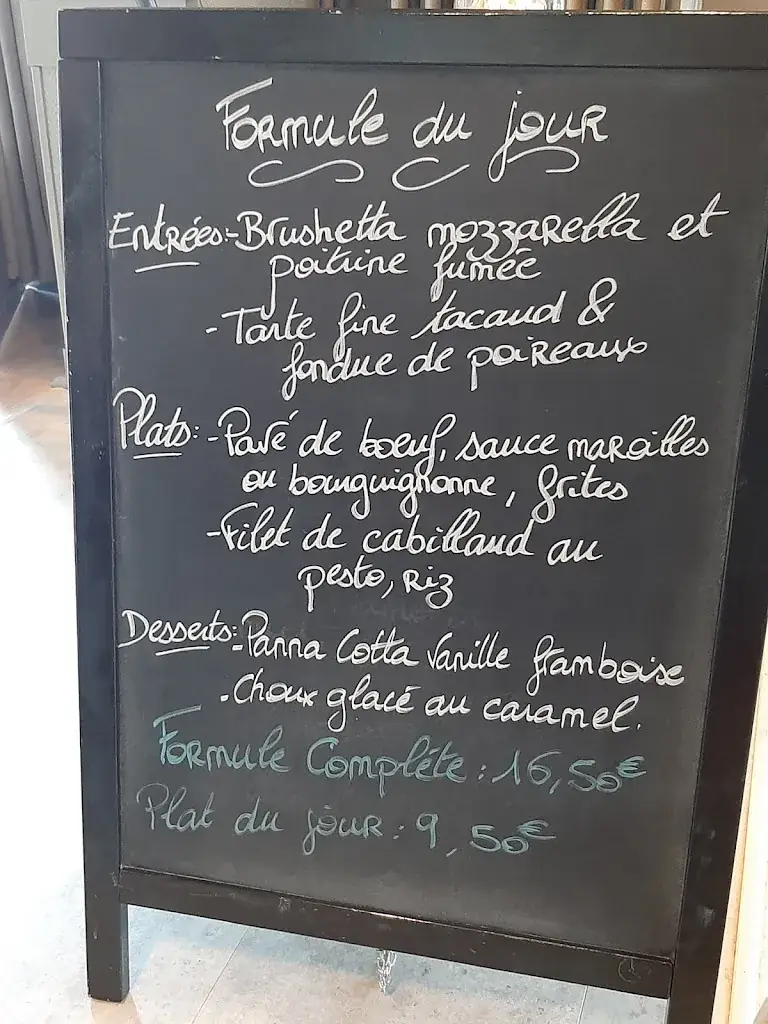 Formule du jour
Entrées:-Brushetta mozzarella et
poitrine fumée
-Tarte fine tacaud &
fondue de poireaux
Plats:-Pavé de boeuf, sauce maroilles
ou bourguignonne, frites
-Filet de cabillaud au
pesto, riz
Desserts:-Panna Cotta Vanille framboise
-Choux glacé au caramel.
Formule Complète: 16,50€
Plat du jour: 9,50€